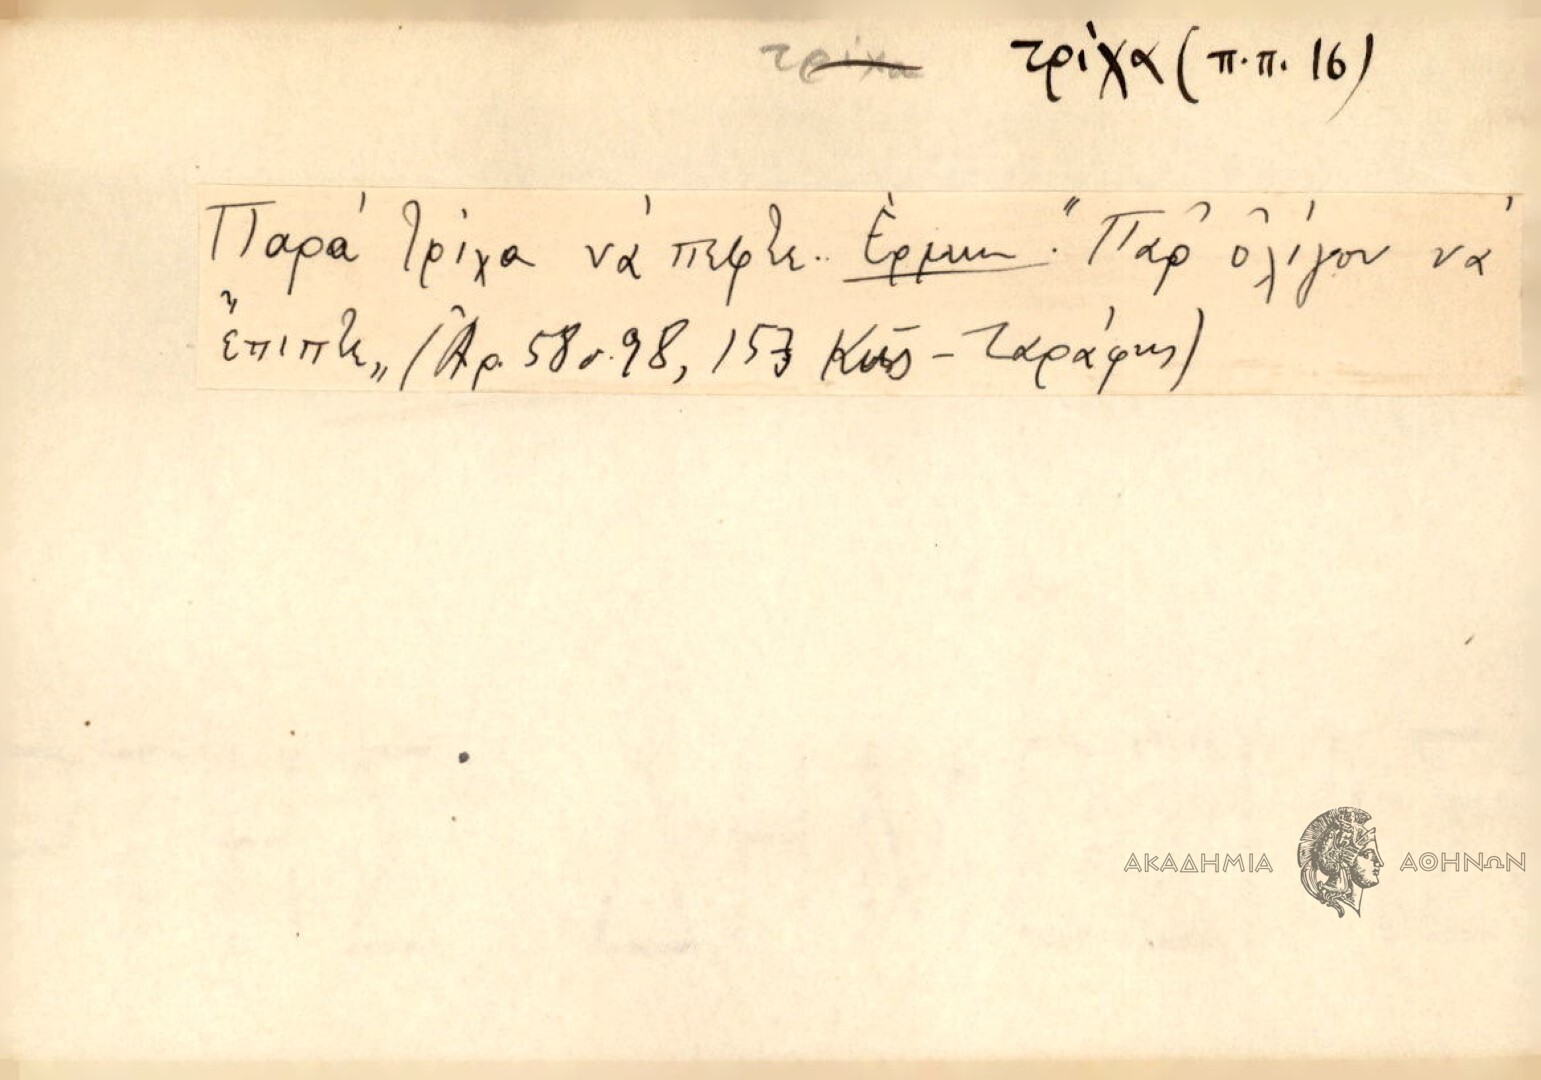 τρίχα τρίχα (π.π. 16)
Παρά τρίχα νά πέφτε.. Ἑρμην. "Παρ' ὀλίγον νά
ἔπιπτε,, (Ἀρ. 58 σ. 98, 153 Κῶς - Ζαράφτης)
ΑΚΑΔΗΜΙΑ ΑΘΗΝΩΝ